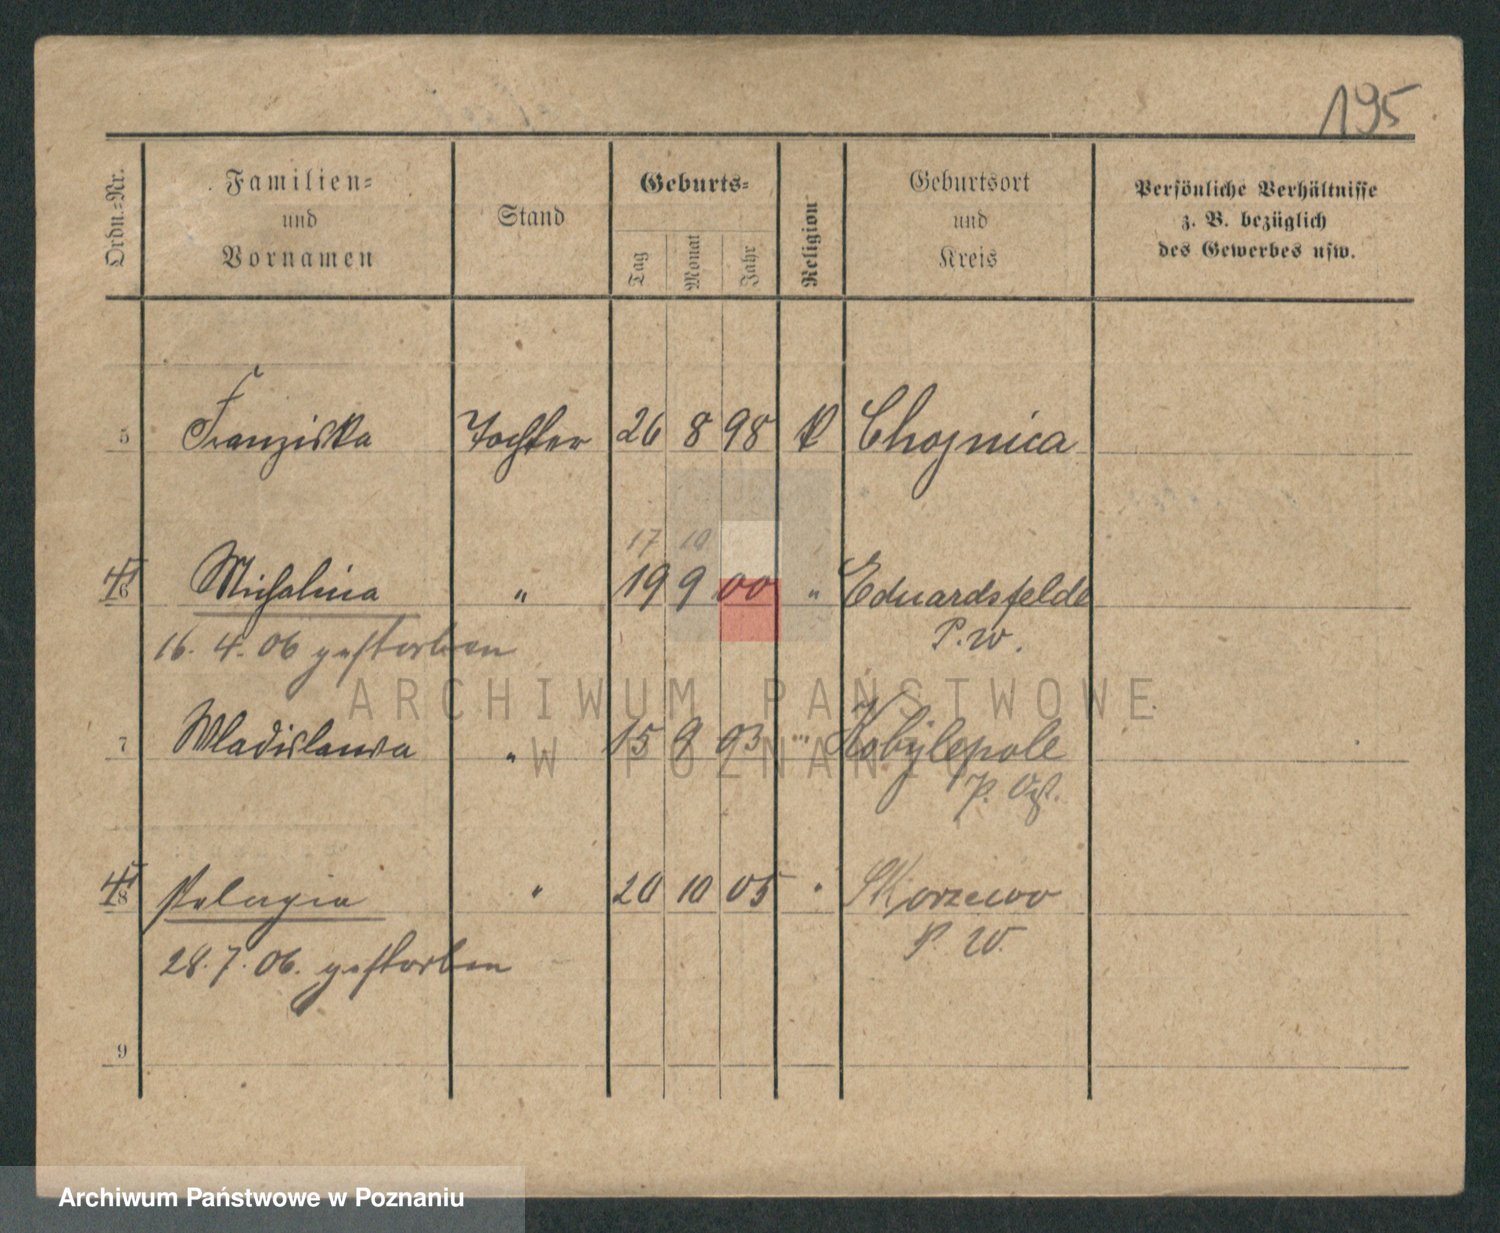 195
Ordn.-Nr.
Familien-
und
Vornamen
Stand
Geburts-
Tag
Monat
Jahr
Religion
Geburtsort
und
Kreis
Persönliche Verhältnisse
z. B. bezüglich
des Gewerbes usw.
5 Franziska Tochter 26 8 98 K Chojnica
17 10
6 Michalina " 19 9 00 " Eduardsfelde
16. 4. 06 gestorben P. W.
ARCHIWUM PAŃSTWOWE
7 Wladislawa " 15 9 03 " Kobylepole
W POZNANIU
P. Ost.
8 Pelagia " 20 10 05 " Skorzewo
28. 7. 06. gestorben P. W.
9
Archiwum Państwowe w Poznaniu